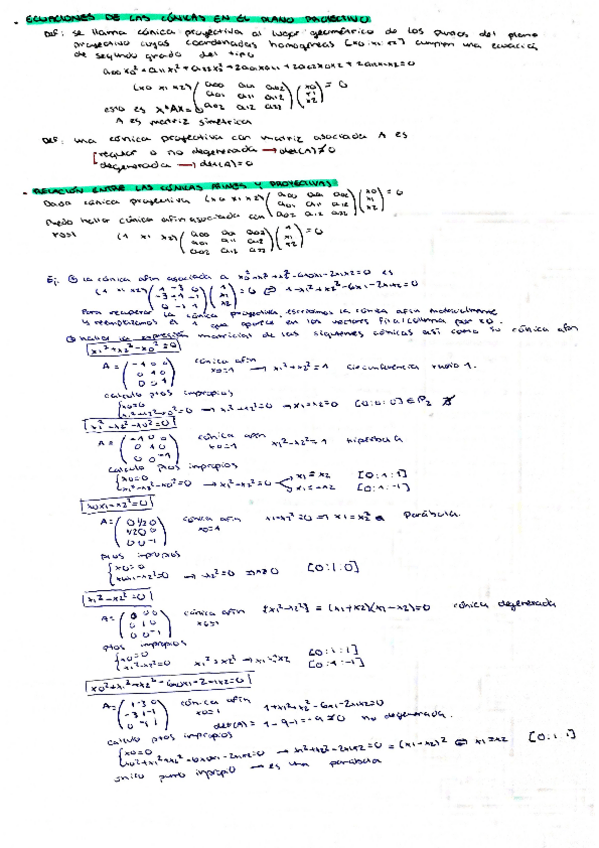 • ECUACIONES DE LAS CÓNICAS EN EL PLANO PROYECTIVO
Def: se llama cónica proyectiva al lugar geométrico de los puntos del plano
proyectivo cuyas coordenadas homogéneas [x0:x1:x2] cumplen una ecuación
de segundo grado del tipo
a00x0²+a11x1²+a22x2²+2a01x0x1+2a02x0x2+2a12x1x2=0
(x0 x1 x2) (a00 a01 a02 a01 a11 a12 a02 a12 a22) (x0 x1 x2) = 0
esto es XᵗAX=0
A es matriz simétrica
Def: una cónica proyectiva con matriz asociada A es
regular o no degenerada → det(A)≠0
degenerada → det(A)=0
• RELACIÓN ENTRE LAS CÓNICAS AFINES Y PROYECTIVAS
Dada cónica proyectiva (x0 x1 x2) (a00 a01 a02 a01 a11 a12 a02 a12 a22) (x0 x1 x2) = 0
Puedo hallar cónica afín asociada con
x0=1 (1 x1 x2) (a00 a01 a02 a01 a11 a12 a02 a12 a22) (1 x1 x2) = 0
Ej: la cónica afín asociada a x0²+x1²+x2²-6x0x1-2x1x2=0 es
(1 x1 x2) (1 -3 0 -3 1 -1 0 -1 1) (1 x1 x2) = 0 ⇔ 1+x1²+x2²-6x1-2x1x2=0
Para recuperar la cónica proyectiva, escribimos la cónica afín matricialmente
y reemplazamos el 1 que aparece en los vectores fila/columna por x0.
hallar la expresión matricial de las siguientes cónicas así como su cónica afín
x1²+x2²-x0²=0
A = (-1 0 0 0 1 0 0 0 1) cónica afín x0=1 → x1²+x2²=1 circunferencia radio 1.
calculo ptos impropios
x0=0
x1²+x2²-x0²=0 → x1²+x2²=0 → x1=x2=0 [0:0:0]∈P2
x1²-x2²-x0²=0
A = (-1 0 0 0 1 0 0 0 -1) cónica afín x0=1 x1²-x2²=1 hipérbola
calculo ptos impropios
x0=0 x1=x2 [0:1:1]
x1²-x2²-x0²=0 → x1²-x2²=0 x1=-x2 [0:1:-1]
x0x1-x2²=0
A = (0 1/2 0 1/2 0 0 0 0 -1) cónica afín x0=1 x1-x2²=0 → x1=x2² parábola.
ptos impropios
x0=0
x0x1-x2²=0 → x2²=0 → x2=0 [0:1:0]
x1²-x2²=0
A = (0 0 0 0 1 0 0 0 -1) cónica afín x0=1 x1²-x2² = (x1+x2)(x1-x2)=0 cónica degenerada
ptos impropios
x0=0 [0:1:1]
x1²-x2²=0 x1²=x2² → x1=±x2 [0:1:-1]
x0²+x1²+x2²-6x0x1-2x1x2=0
A = (1 -3 0 -3 1 -1 0 -1 1) cónica afín x0=1 1+x1²+x2²-6x1-2x1x2=0
det(A)= 1-9-1=-9≠0 no degenerada.
calculo ptos impropios
x0=0
x0²+x1²+x2²-6x0x1-2x1x2=0 → x1²+x2²-2x1x2=0 = (x1-x2)² ⇔ x1=x2 [0:1:1]
único punto impropio → es una parábola